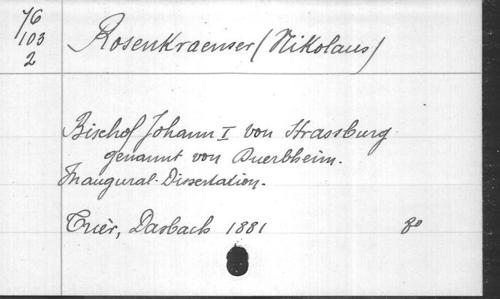 76
103
2
Rosenkraenser (Nikolaus)
Bischof Johann I von Strassburg
genannt von Duerbheim.
Inaugural-Dissertation.
Trier, Dasbach 1881